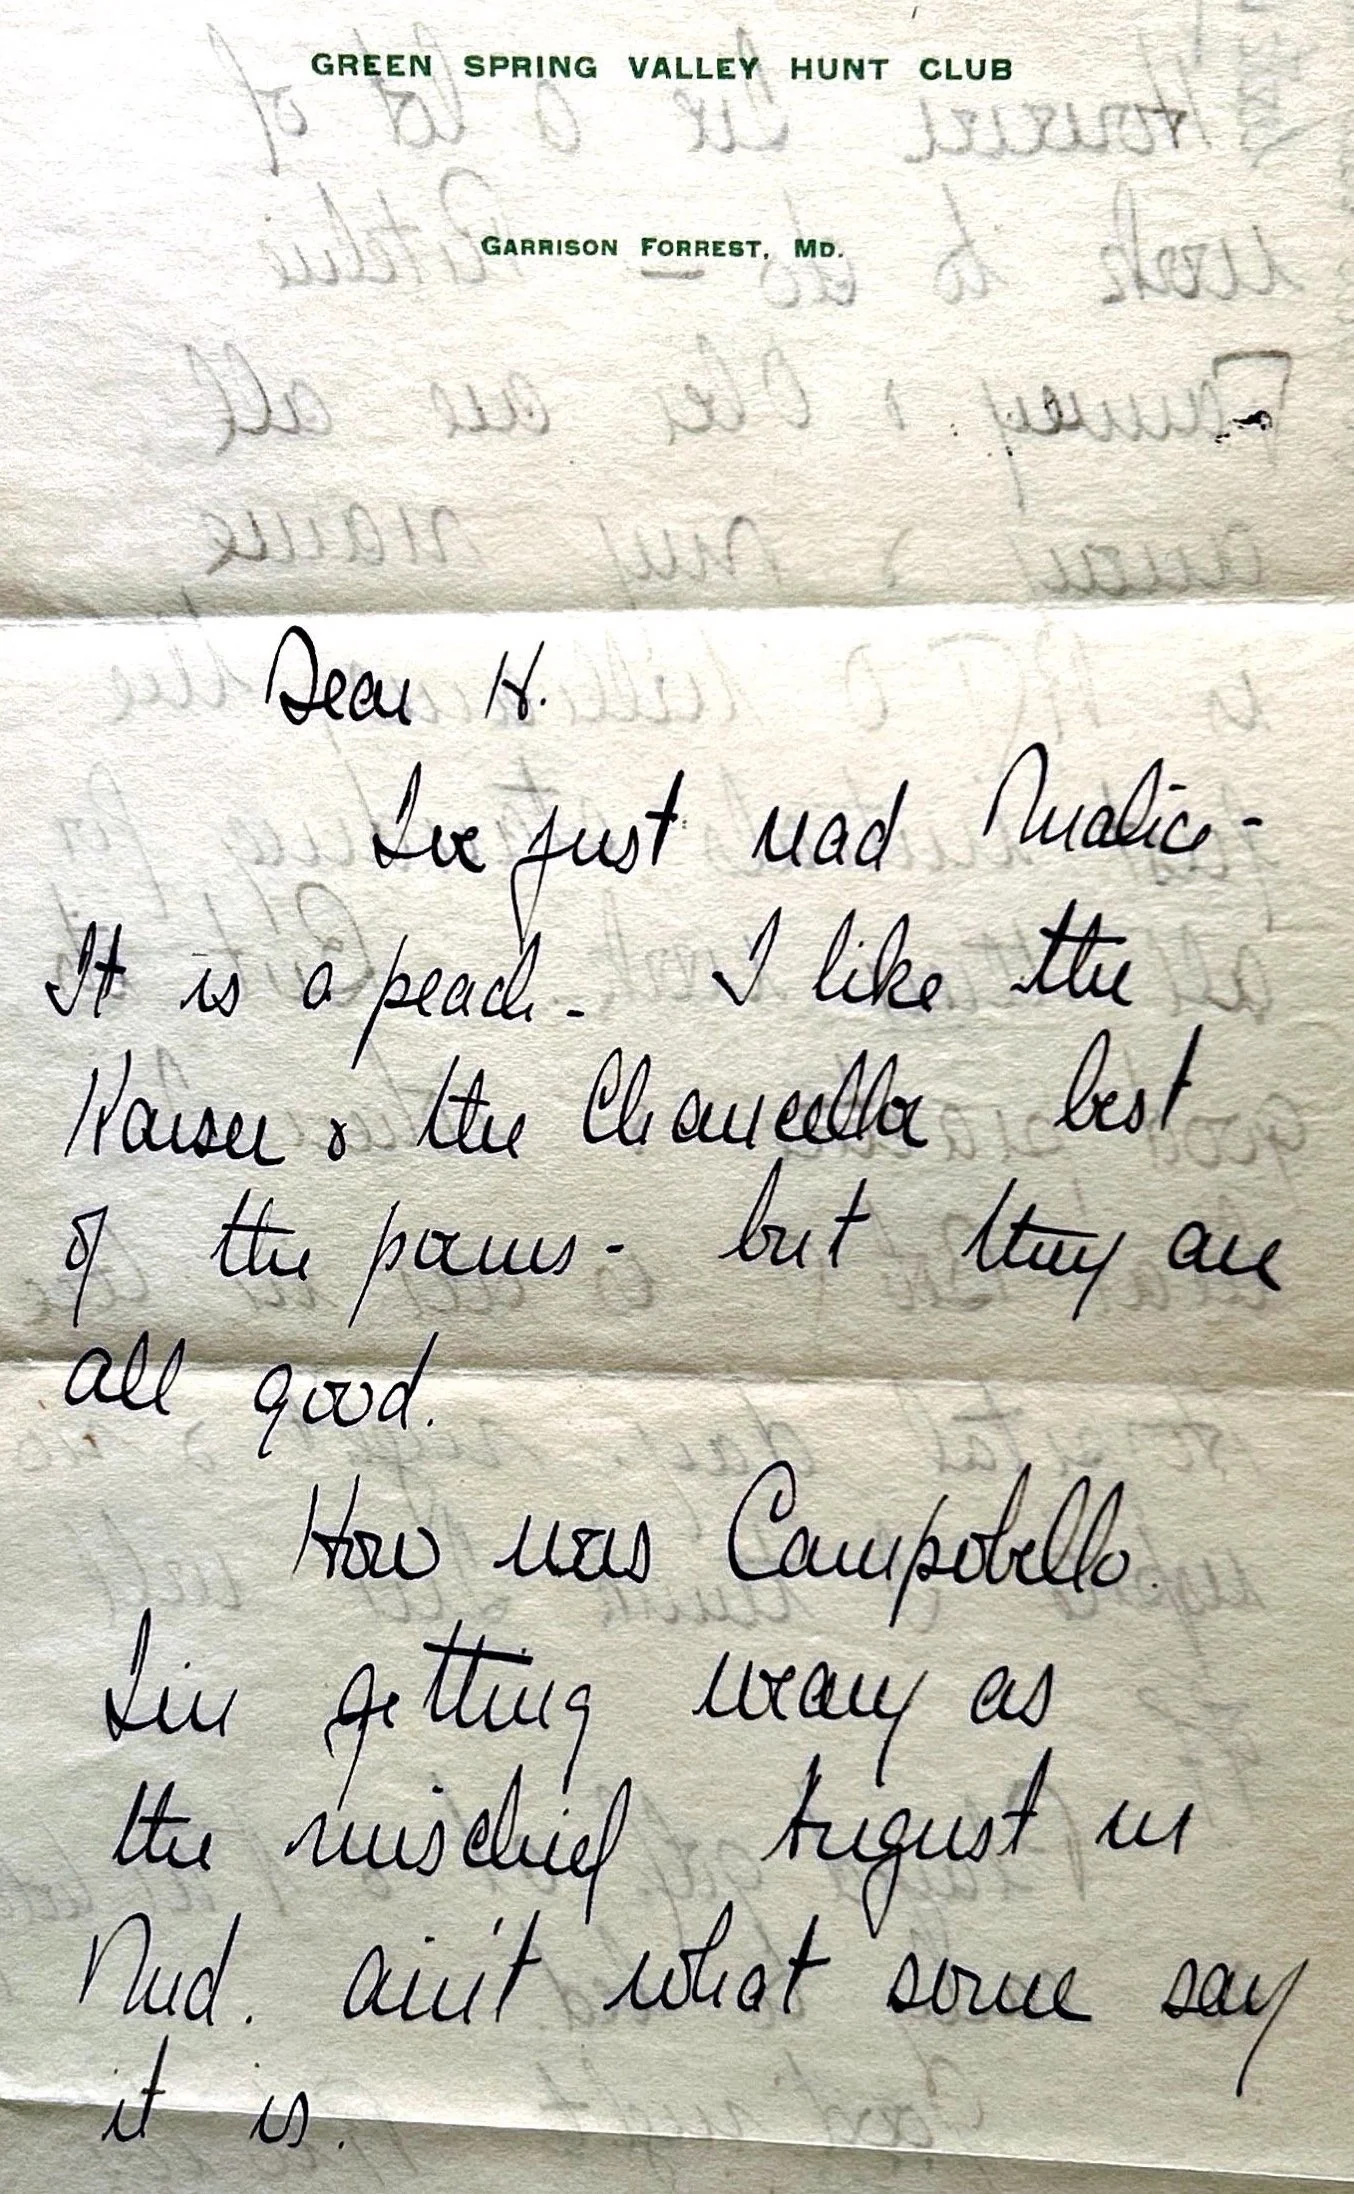 GREEN SPRING VALLEY HUNT CLUB
GARRISON FORREST, MD.
Dear H.
I've just read Malice -
It is a peach - I like the
Kaiser & the Chancellor best
of the poems - but they are
all good.
How was Campobello.
I'm getting weary as
the mischief August in
Md. ain't what some say
it is.